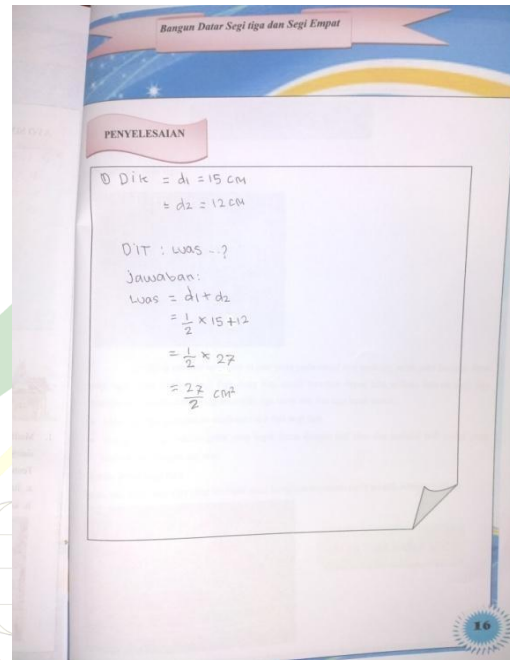 Bangun Datar Segi tiga dan Segi Empat
PENYELESAIAN
① Dik = d1 = 15 cm
= d2 = 12 cm
DIT : Luas ..?
Jawaban:
Luas = d1 + d2
= 1/2 × 15 + 12
= 1/2 × 27
= 27/2 cm²
16